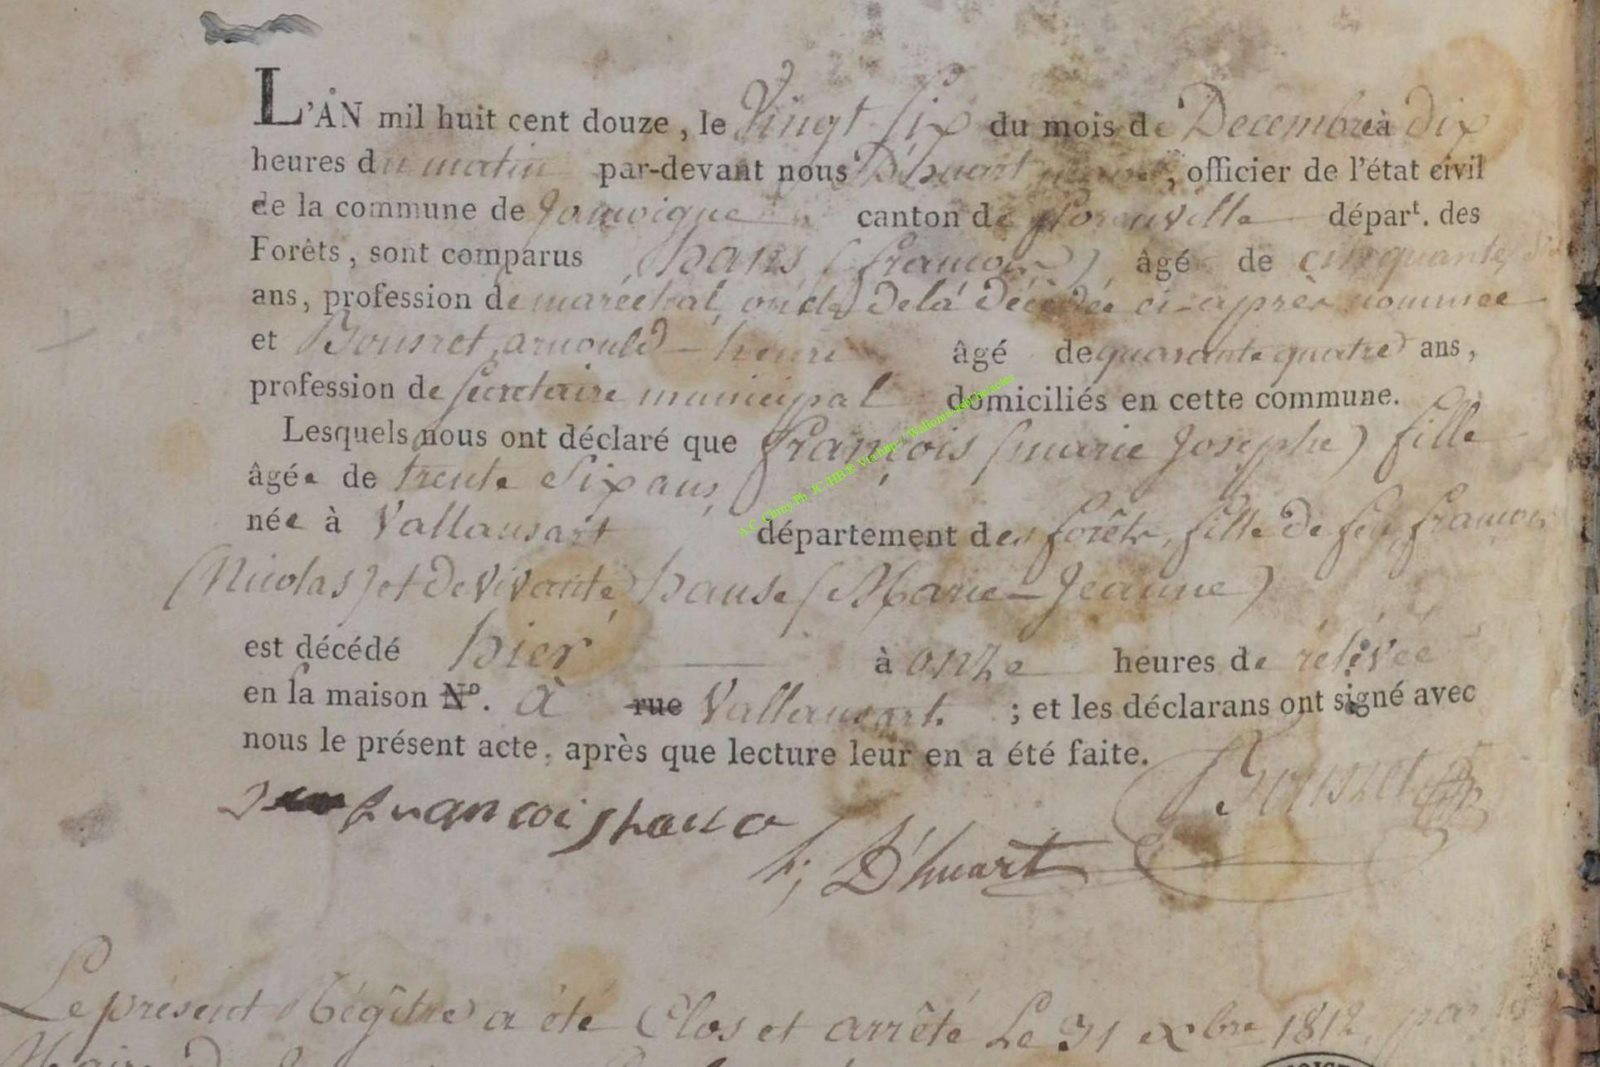 L'AN mil huit cent douze, le Vingt Six du mois de Decembre à dix
heures du matin par-devant nous D'huart maire, officier de l'état civil
de la commune de Jamoigne canton de florenville départ. des
Forêts, sont comparus hans (françois) âgé de cinquante
ans, profession de maréchal, oncle de la décédée ci-après nommée
et Bousret arnould-henri âgé de quarante quatre ans,
profession de secretaire municipal domiciliés en cette commune.
Lesquels nous ont déclaré que françois (marie Josephe) fille
âgée de trente Six ans,
née à Vallansart département des forêts, fille de feu francois
(Nicolas) et de vivante hause (Marie-Jeanne)
est décédé hier à onze heures de rélévée
en la maison N°. à rue Vallansart. ; et les déclarans ont signé avec
nous le présent acte, après que lecture leur en a été faite.
francois
Bousret
D'huart
Le présent Régître a été Clos et arrêté Le 31 xbre 1812, par le
Maire